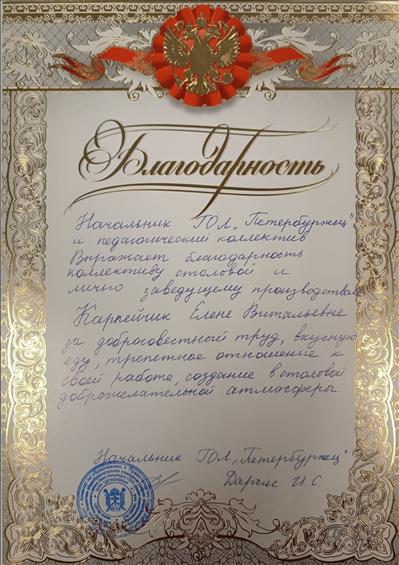 Благодарность
Начальник ГОЛ „Петербуржец"
и педагогический коллектив
Выражает благодарность
коллективу столовой и
лично заведущему производством
Карпейчик Елене Витальевне
за добросовестный труд, вкусную
еду, трепетное отношение к
своей работе, создание в столовой
доброжелательной атмосферы.
Начальник ГОЛ „Петербуржец"
И.С.